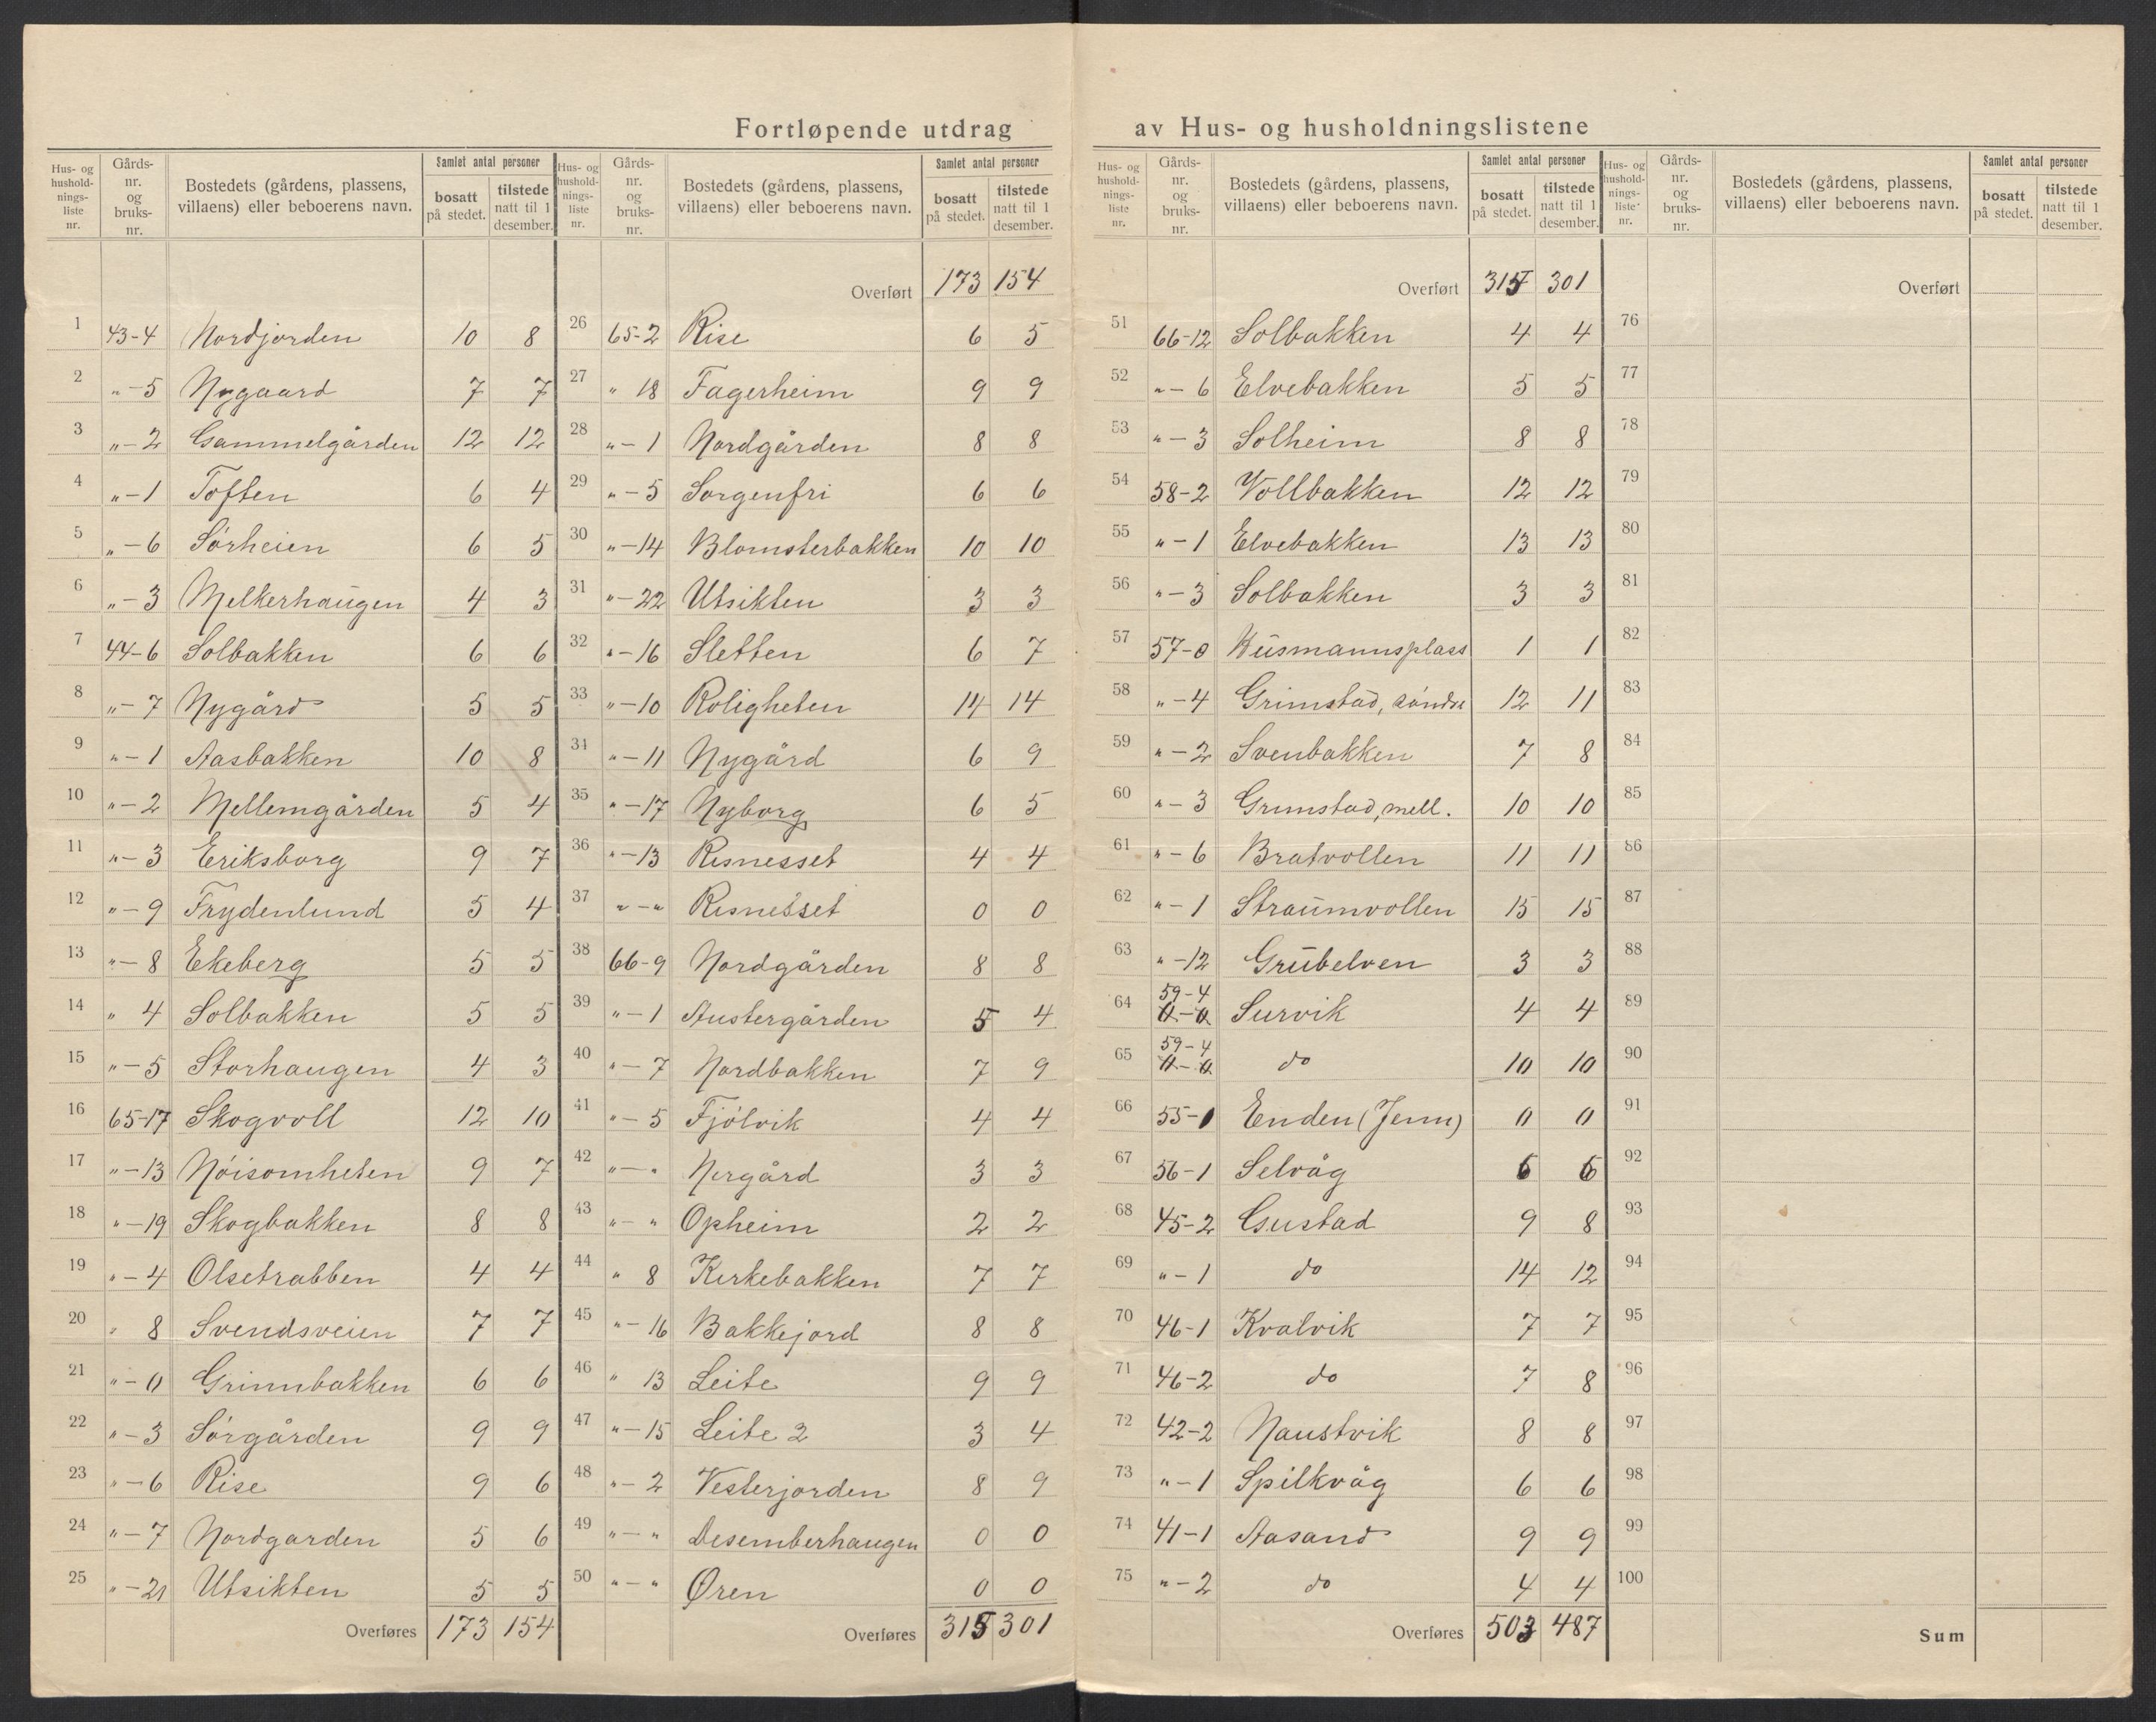 Fortløpende utdrag av Hus- og husholdningslistene
Hus- og hushold-nings-liste nr. | Gårds-nr. og bruks-nr. | Bostedets (gårdens, plassens, villaens) eller beboerens navn. | Samlet antal personer | bosatt på stedet. | tilstede natt til 1 desember.
1 43-4 Nordjorden 10 8
2 „-5 Nygaard 7 7
3 „-2 Gammelgården 12 12
4 „-1 Toften 6 4
5 „-6 Sørheien 6 5
6 „-3 Melkerhaugen 4 3
7 44-6 Solbakken 6 6
8 „-7 Nygård 5 5
9 „-1 Aasbakken 10 8
10 „-2 Mellemgården 5 4
11 „-3 Eriksborg 9 7
12 „-9 Frydenlund 5 4
13 „-8 Ekeberg 5 5
14 „ 4 Solbakken 5 5
15 „-5 Storhaugen 4 3
16 65-17 Skogvoll 12 10
17 „-13 Nøisomheten 9 7
18 „-19 Skogbakken 8 8
19 „-4 Olsetrabben 4 4
20 „ 8 Svendsveien 7 7
21 „-0 Grinnbakken 6 6
22 „-3 Sørgården 9 9
23 „-6 Rise 9 6
24 „-7 Nordgarden 5 6
25 „-21 Utsikten 5 5
Overføres 173 154
Hus- og hushold-nings-liste nr. | Gårds-nr. og bruks-nr. | Bostedets (gårdens, plassens, villaens) eller beboerens navn. | Samlet antal personer | bosatt på stedet. | tilstede natt til 1 desember.
Overført 173 154
26 65-2 Rise 6 5
27 „ 18 Fagerheim 9 9
28 „-1 Nordgården 8 8
29 „-5 Sorgenfri 6 6
30 „-14 Blomsterbakken 10 10
31 „-22 Utsikten 3 3
32 „-16 Sletten 6 7
33 „-10 Roligheten 14 14
34 „-11 Nygård 6 9
35 „-17 Nyborg 6 5
36 „-13 Risnesset 4 4
37 „-„ Risnesset 0 0
38 66-9 Nordgården 8 8
39 „-1 Austergården 5 4
40 „-7 Nordbakken 7 9
41 „-5 Fjölvik 4 4
42 „-„ Nergård 3 3
43 „-„ Opheim 2 2
44 „ 8 Kirkebakken 7 7
45 „-16 Bakkejord 8 8
46 „ 13 Leite 9 9
47 „-15 Leite 2 3 4
48 „-2 Vesterjorden 8 9
49 „-„ Desemberhaugen 0 0
50 „-„ Øren 0 0
Overføres 315 301
Hus- og hushold-nings-liste nr. | Gårds-nr. og bruks-nr. | Bostedets (gårdens, plassens, villaens) eller beboerens navn. | Samlet antal personer | bosatt på stedet. | tilstede natt til 1 desember.
Overført 315 301
51 66-12 Solbakken 4 4
52 „-6 Elvebakken 5 5
53 „-3 Solheim 8 8
54 58-2 Vollbakken 12 12
55 „-1 Elvebakken 13 13
56 „-3 Solbakken 3 3
57 57-0 Husmannsplass 1 1
58 „-4 Grimstad, söndre 12 11
59 „-2 Svenbakken 7 8
60 „-3 Grimstad, mell. 10 10
61 „-6 Bratvollen 11 11
62 „-1 Straumvollen 15 15
63 „-12 Grubelven 3 3
64 59-4 0-0 Survik 4 4
65 59-4 0-0 do 10 10
66 55-1 Enden (Jenn) 0 0
67 56-1 Selvåg 6 6
68 45-2 Gustad 9 8
69 „-1 do 14 12
70 46-1 Kvalvik 7 7
71 46-2 do 7 8
72 42-2 Naustvik 8 8
73 „-1 Spilkvåg 6 6
74 41-1 Aasand 9 9
75 „-2 do 4 4
Overføres 503 487
Hus- og hushold-nings-liste nr. | Gårds-nr. og bruks-nr. | Bostedets (gårdens, plassens, villaens) eller beboerens navn. | Samlet antal personer | bosatt på stedet. | tilstede natt til 1 desember.
Overført
76
77
78
79
80
81
82
83
84
85
86
87
88
89
90
91
92
93
94
95
96
97
98
99
100
Sum